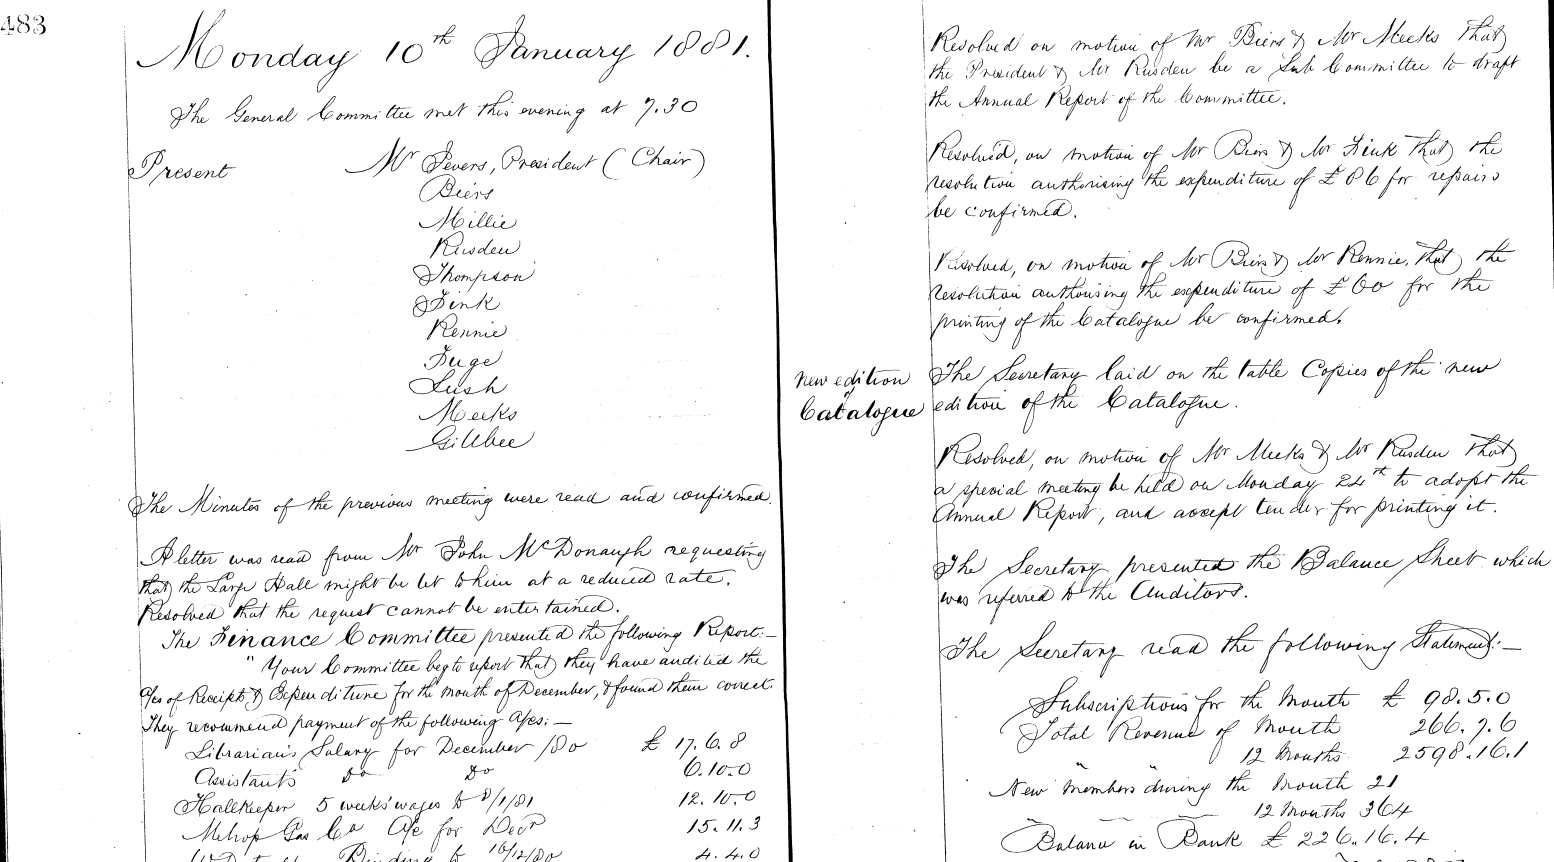 483
Monday 10th January 1881.
The General Committee met this evening at 7.30
Present Mr Jevers, President (Chair)
Biers
Millie
Rusden
Thompson
Fink
Rennie
Fuge
Lush
Meeks
Gillbee
The Minutes of the previous meeting were read and confirmed.
A letter was read from Mr John McDonaugh requesting
that the Large Hall might be let to him at a reduced rate.
Resolved that the request cannot be entertained.
The Finance Committee presented the following Report:—
"Your Committee beg to report that they have audited the
a/cs of Receipts & Expenditure for the month of December, & found them correct.
They recommend payment of the following a/cs:—
Librarian's Salary for December /80 £ 17.6.8
Assistant's Do Do 6.10.0
Hallkeeper 5 weeks' wages to 8/1/81 12.10.0
Metrop Gas Co a/c for Decr 15.11.3
Binding to 16/12/80 4.4.0
Resolved on motion of Mr Biers & Mr Meeks that
the President & Mr Rusden be a Sub Committee to draft
the Annual Report of the Committee.
Resolved, on motion of Mr Biers & Mr Fink that the
resolution authorising the expenditure of £86 for repairs
be confirmed.
Resolved, on motion of Mr Biers & Mr Rennie, that the
resolution authorising the expenditure of £60 for the
printing of the Catalogue be confirmed.
new edition
of
Catalogue
The Secretary laid on the table Copies of the new
edition of the Catalogue.
Resolved, on motion of Mr Meeks & Mr Rusden that
a special meeting be held on Monday 24th to adopt the
Annual Report, and accept tender for printing it.
The Secretary presented the Balance Sheet which
was referred to the Auditors.
The Secretary read the following Statement:—
Subscriptions for the Month £ 98.5.0
Total Revenue of Month 266.7.6
" " 12 Months 2598.16.1
New Members during the Month 21
12 Months 364
Balance in Bank £ 226.16.4